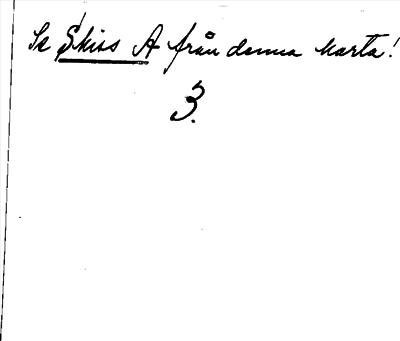 Se Skiss A från denna karta!
3.